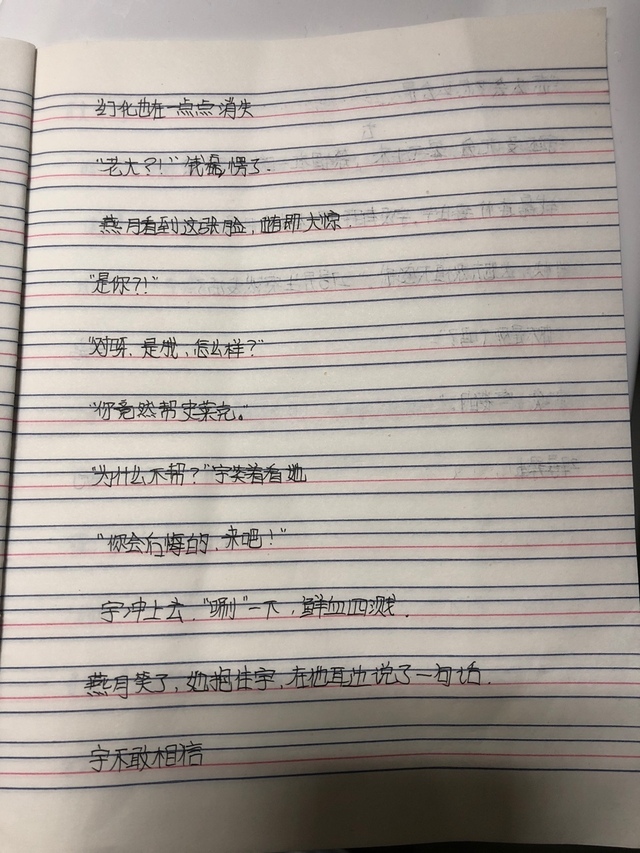 幻化也在一点点消失
"老大?!"伐磊愣了.
燕月看到这张脸,随即大惊.
"是你?!"
"对呀,是我,怎么样?"
"你竟然帮史莱克。"
"为什么不帮?"宇笑着看她
"你会后悔的,来吧!"
宇冲上去,"唰"一下,鲜血四溅.
燕月笑了,她抱住宇,在他耳边说了一句话.
宇不敢相信